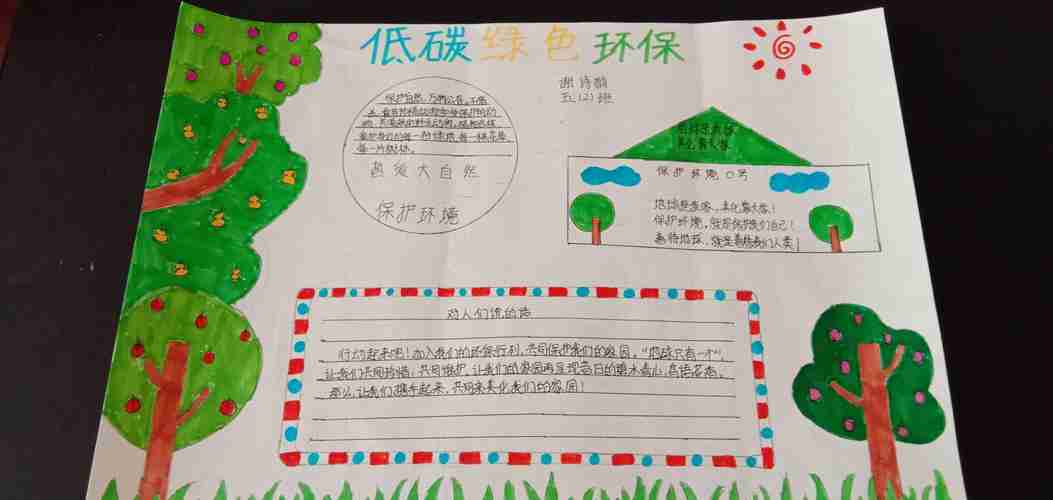 低碳绿色环保
谢诗韵
五(2)班
保护自然,万物公有,不借
每一片树林.
热爱大自然
保护环境
美化靠大家
保护环境口号
地球是我家,美化靠大家!
保护环境,就是保护我们自己!
善待地球,就是善待我们人类!
对人们说的话
行动起来吧!加入我们的环保行列,共同保护我们的家园,“地球只有一个”,
让我们共同珍惜,共同维护,让我们的家园再呈现昔日的碧水青山,鸟语花香。
那么,让我们携手起来,共同来美化我们的家园!